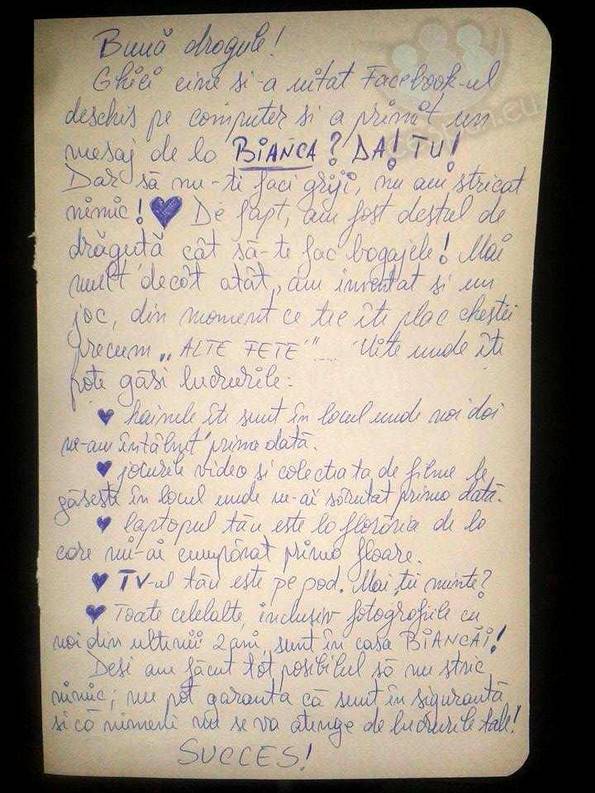 Bună dragule!
Ghici cine și-a uitat Facebook-ul
deschis pe computer si a primit un
mesaj de la BIANCA? DA! TU!
Dar să nu-ti faci griji, nu am stricat
nimic! De fapt, am fost destul de
drăguță cât să-te fac bagajele! Mai
mult decât atât, am inventat și un
joc, din moment ce tie îti plac chestii
precum „ALTE FETE"... Uite unde îti
poti găsi lucrurile:
hainele îti sunt în locul unde noi doi
ne-am întâlnit prima dată.
jocurile video și colectia ta de filme le
găsesti în locul unde m-ai sărutat prima dată.
laptopul tău este la florăria de la
care mi-ai cumpărat prima floare.
TV-ul tău este pe pod. Mai tii minte?
Toate celelalte, inclusiv fotografiile cu
noi din ultimii 2 ani, sunt în casa BIANCĂI!
Desi am făcut tot posibilul să nu stric
nimic, nu pot garanta că sunt în sigurantă
si că nimeni nu se va atinge de lucrurile tale!
SUCCES!